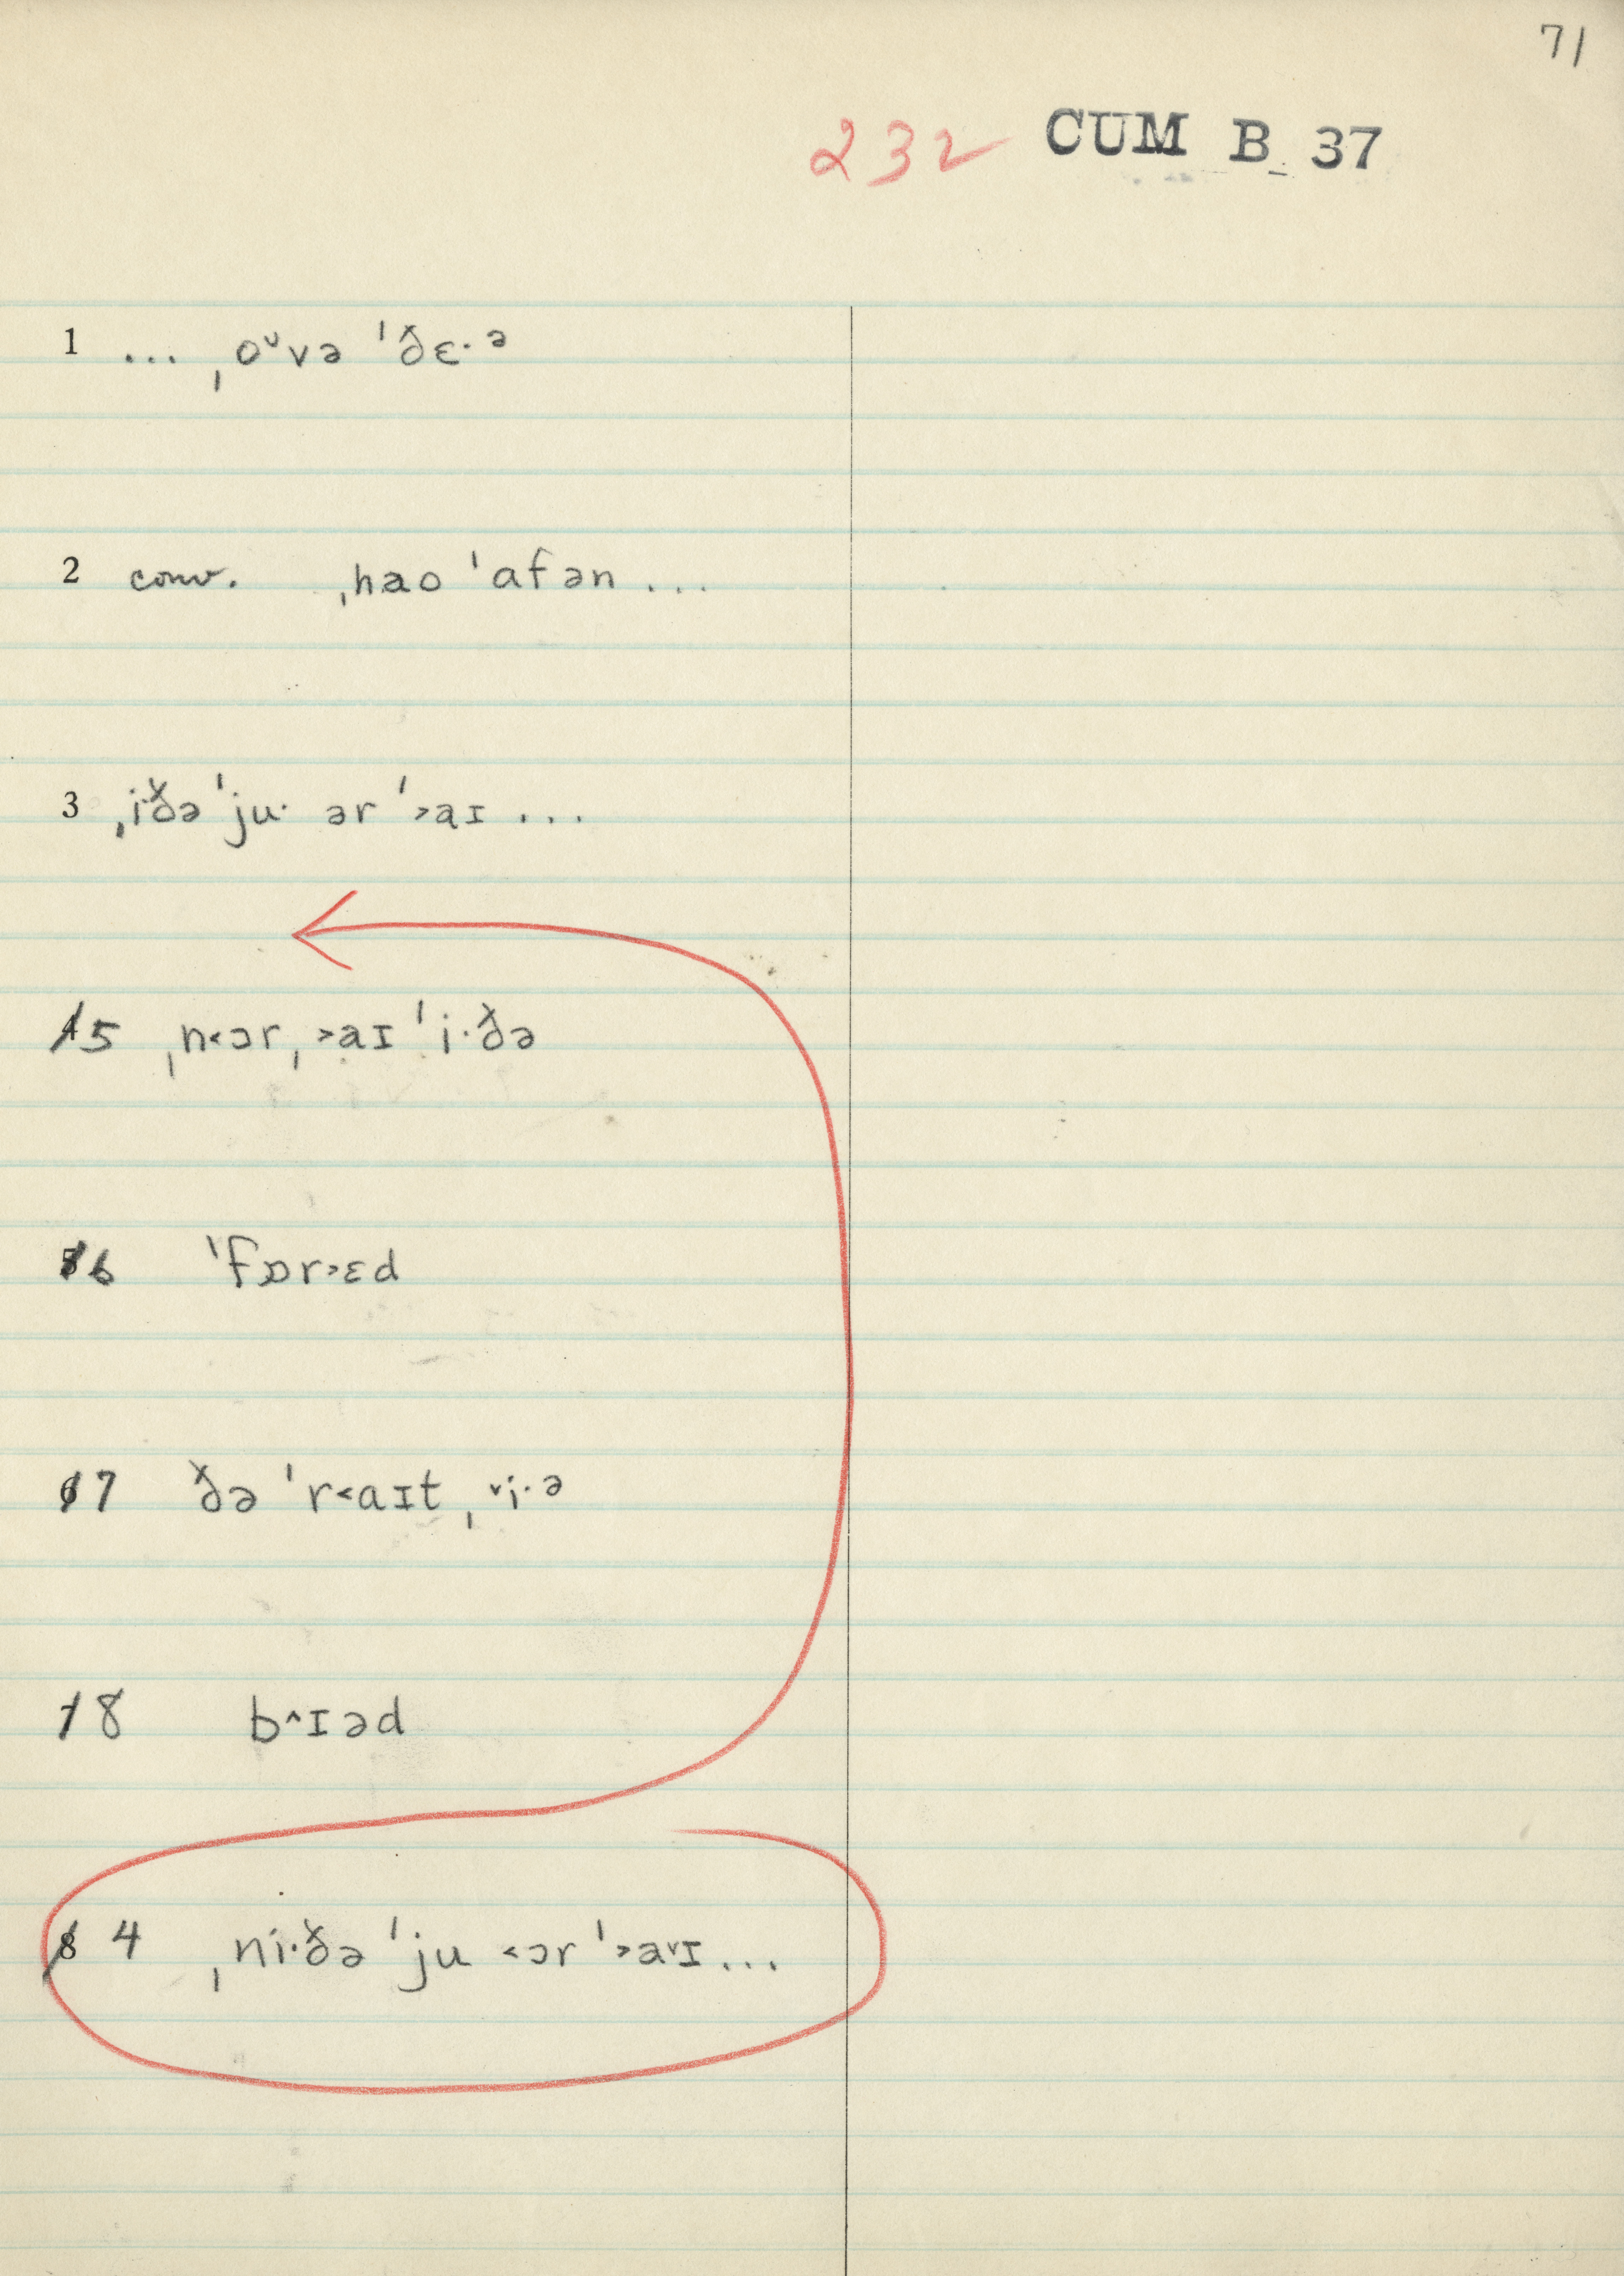 71
232 CUM B 37
1 ... ˌoᵘvə ˈðɛ·ᵊ
2 conv. ˌhao ˈafən ...
3 ˌi·ðə ˈju· ər ˈ˃aɪ ...
4 5 ˌn˂ɔr ˌ˃aɪ ˈi·ðə
5 6 ˈfɒr˃ɛd
6 7 ðə ˈr˂aɪt ˌ˅i·ᵊ
7 8 b˄ɪəd
8 4 ˌni·ðə ˈju ˂ɔr ˈ˃a˅ɪ ...